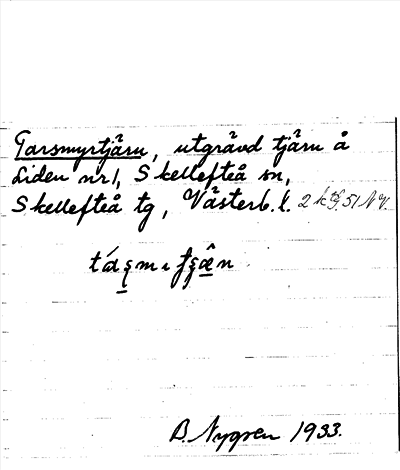 Tarsmyrtjärn, utgrävd tjärn å
Liden nr 1, Skellefteå sn,
Skellefteå tg, Västerb. l. 51 NV.
B. Nygren 1933.